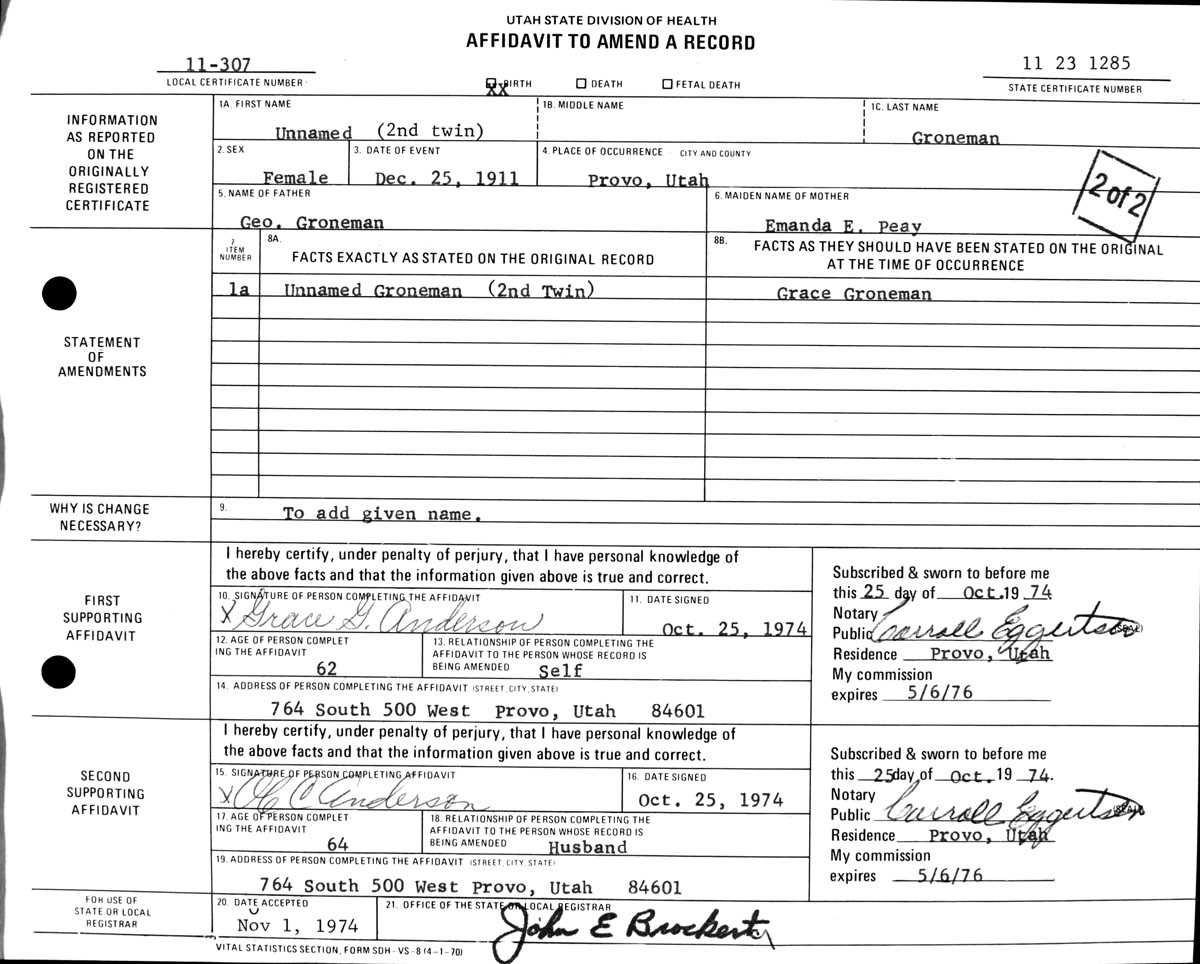 UTAH STATE DIVISION OF HEALTH
AFFIDAVIT TO AMEND A RECORD
11-307
LOCAL CERTIFICATE NUMBER
XX BIRTH
DEATH
FETAL DEATH
11 23 1285
STATE CERTIFICATE NUMBER
INFORMATION
AS REPORTED
ON THE
ORIGINALLY
REGISTERED
CERTIFICATE
1A. FIRST NAME
Unnamed (2nd twin)
1B. MIDDLE NAME
1C. LAST NAME
Groneman
2. SEX
Female
3. DATE OF EVENT
Dec. 25, 1911
4. PLACE OF OCCURRENCE CITY AND COUNTY
Provo, Utah
2 of 2
5. NAME OF FATHER
Geo. Groneman
6. MAIDEN NAME OF MOTHER
Emanda E. Peay
STATEMENT
OF
AMENDMENTS
7
ITEM
NUMBER
8A.
FACTS EXACTLY AS STATED ON THE ORIGINAL RECORD
8B.
FACTS AS THEY SHOULD HAVE BEEN STATED ON THE ORIGINAL
AT THE TIME OF OCCURRENCE
1a
Unnamed Groneman (2nd Twin)
Grace Groneman
WHY IS CHANGE
NECESSARY?
9.
To add given name.
FIRST
SUPPORTING
AFFIDAVIT
I hereby certify, under penalty of perjury, that I have personal knowledge of
the above facts and that the information given above is true and correct.
10. SIGNATURE OF PERSON COMPLETING THE AFFIDAVIT
X Grace G. Anderson
11. DATE SIGNED
Oct. 25, 1974
12. AGE OF PERSON COMPLET
ING THE AFFIDAVIT
62
13. RELATIONSHIP OF PERSON COMPLETING THE
AFFIDAVIT TO THE PERSON WHOSE RECORD IS
BEING AMENDED Self
14. ADDRESS OF PERSON COMPLETING THE AFFIDAVIT (STREET, CITY, STATE)
764 South 500 West Provo, Utah 84601
Subscribed & sworn to before me
this 25 day of Oct. 19 74
Notary
Public Carroll Eggertsen (SEAL)
Residence Provo, Utah
My commission
expires 5/6/76
SECOND
SUPPORTING
AFFIDAVIT
I hereby certify, under penalty of perjury, that I have personal knowledge of
the above facts and that the information given above is true and correct.
15. SIGNATURE OF PERSON COMPLETING AFFIDAVIT
X C Anderson
16. DATE SIGNED
Oct. 25, 1974
17. AGE OF PERSON COMPLET
ING THE AFFIDAVIT
64
18. RELATIONSHIP OF PERSON COMPLETING THE
AFFIDAVIT TO THE PERSON WHOSE RECORD IS
BEING AMENDED Husband
19. ADDRESS OF PERSON COMPLETING THE AFFIDAVIT (STREET, CITY, STATE)
764 South 500 West Provo, Utah 84601
Subscribed & sworn to before me
this 25 day of Oct. 19 74.
Notary
Public Carroll Eggertsen (SEAL)
Residence Provo, Utah
My commission
expires 5/6/76
FOR USE OF
STATE OR LOCAL
REGISTRAR
20. DATE ACCEPTED
Nov 1, 1974
21. OFFICE OF THE STATE OR LOCAL REGISTRAR
John E Brockert
VITAL STATISTICS SECTION, FORM SDH-VS-8 (4-1-70)